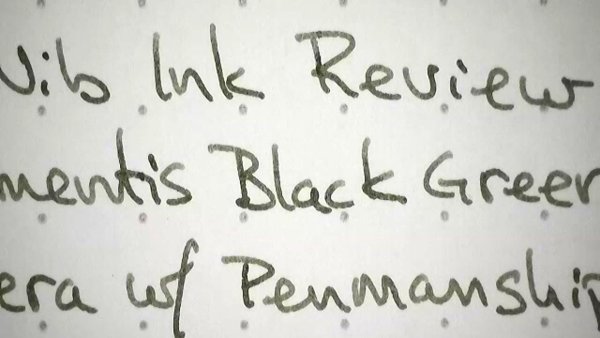 Nib Ink Review
mentis Black Green
era w/ Penmanship